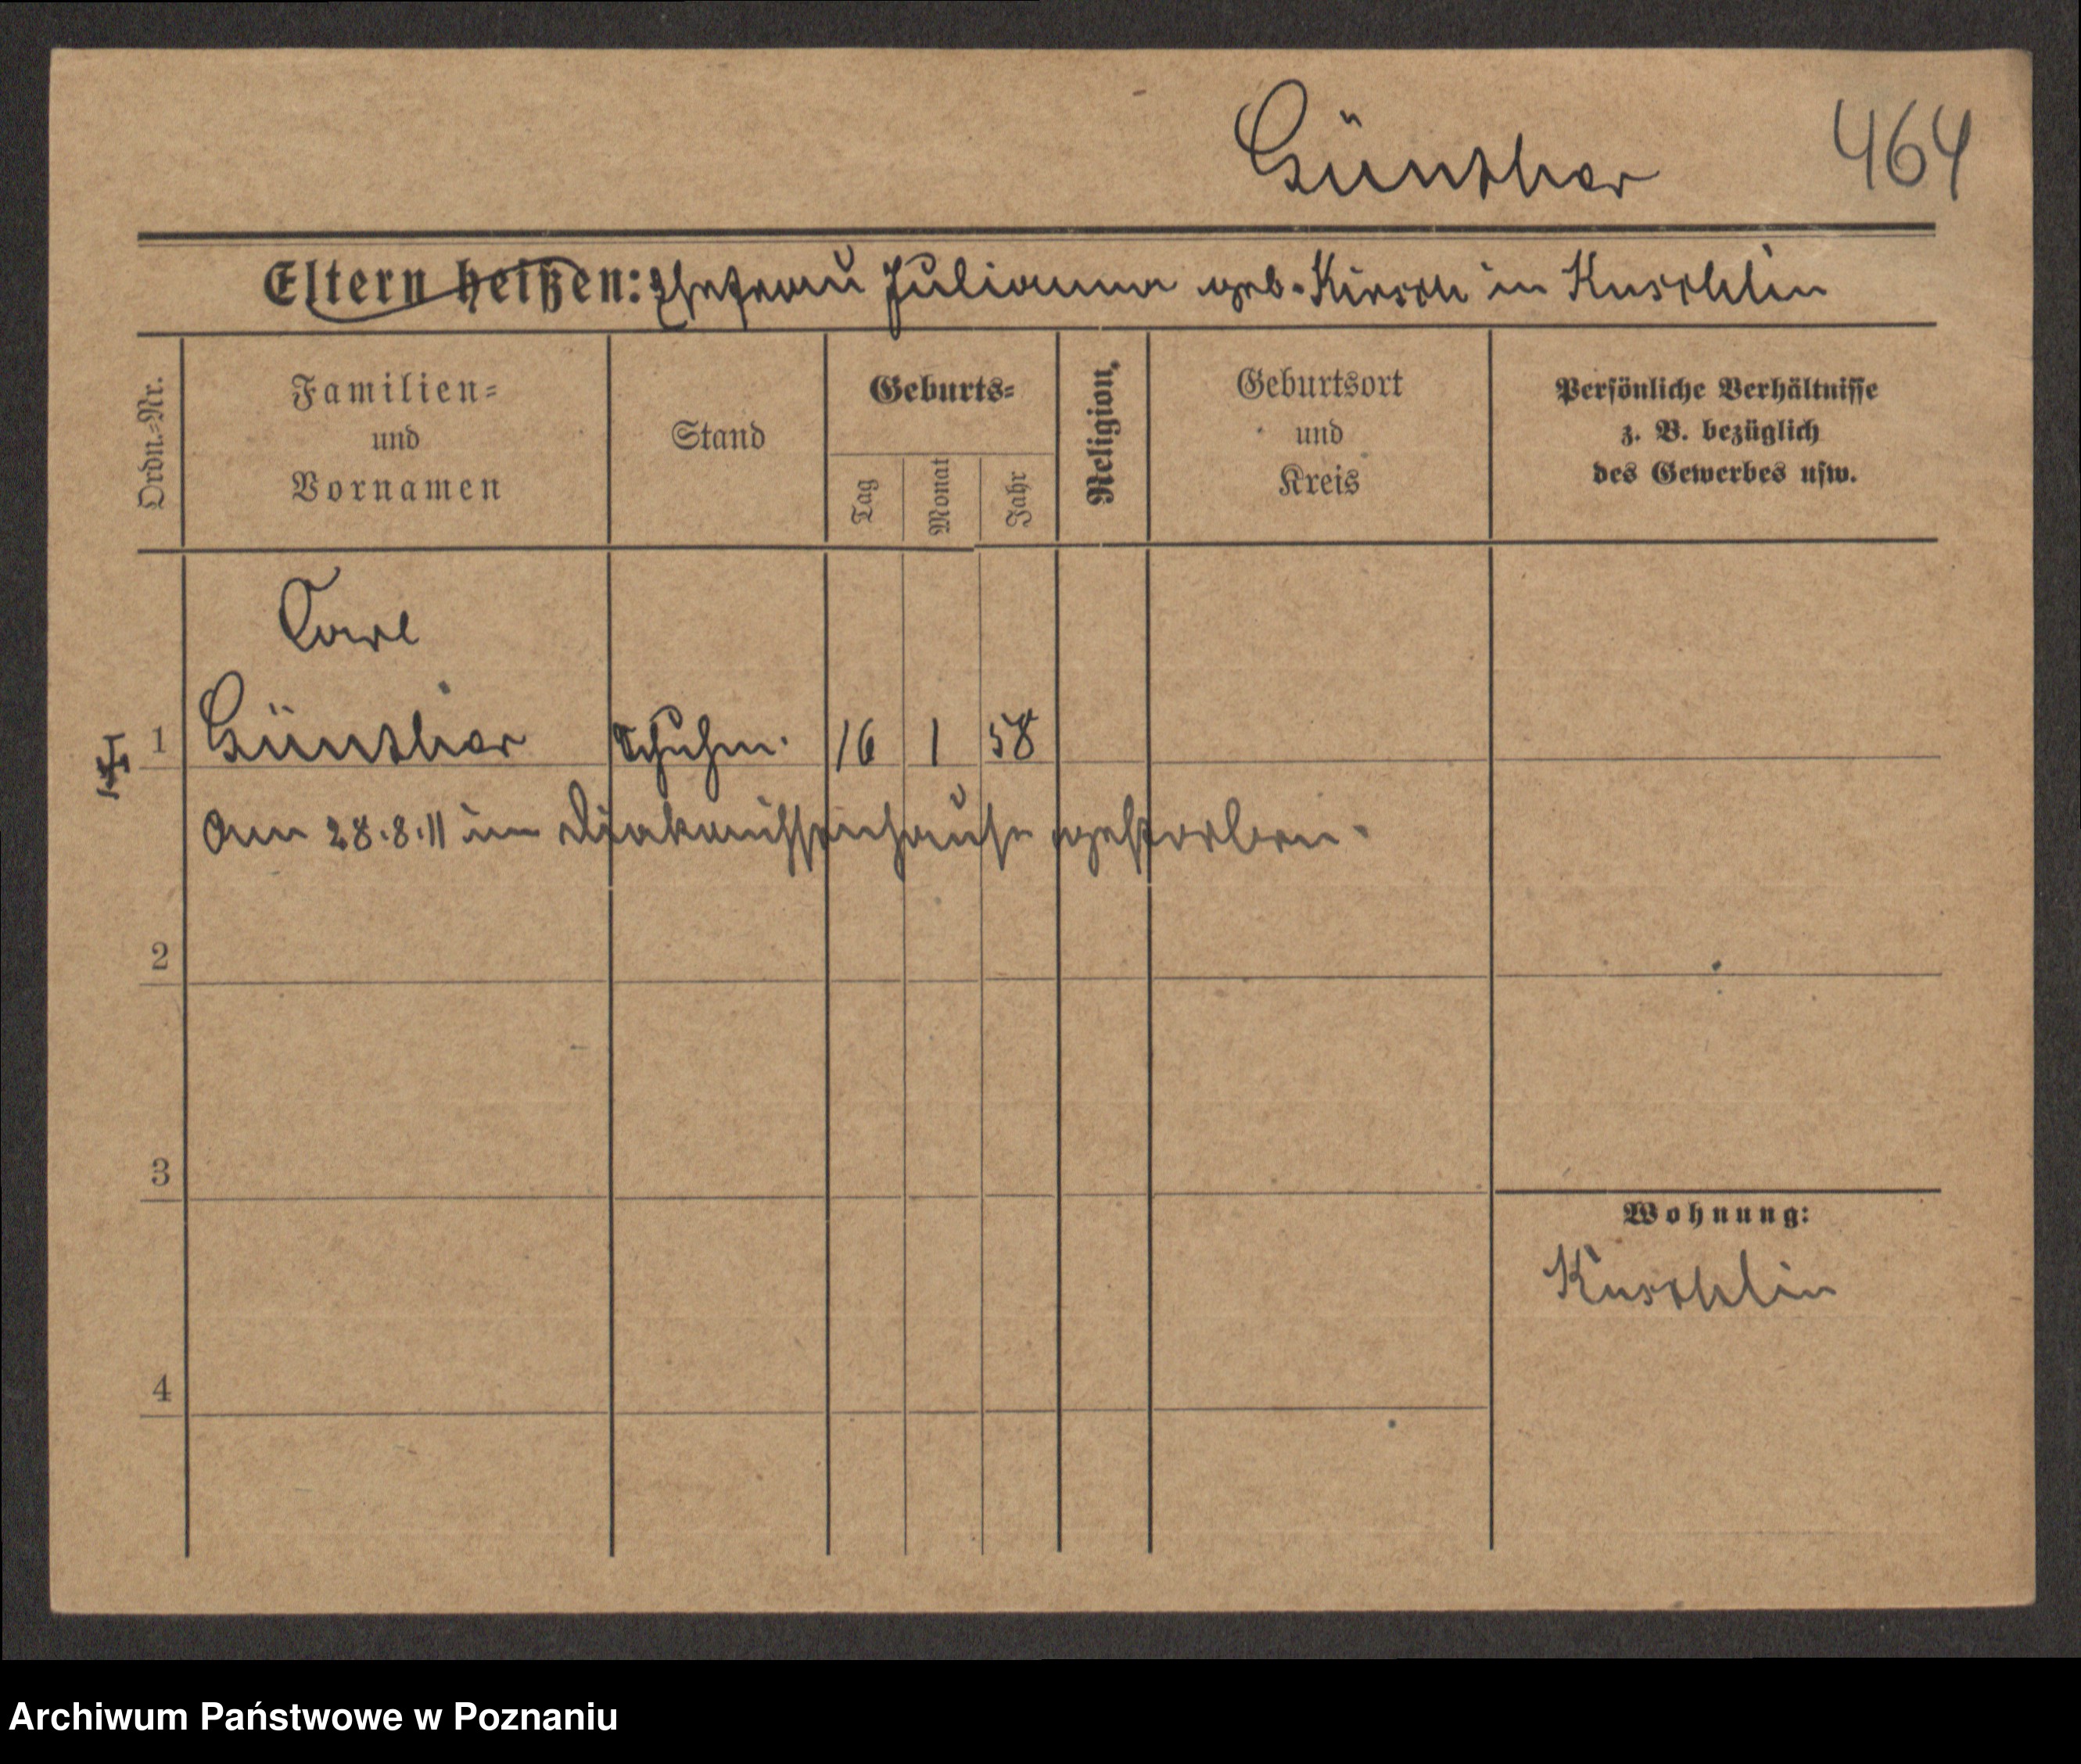 Günther 464
Eltern heißen: Ehefrau Julianna geb. Kirsch in Kuschlin
Ordn.=Nr.
Familien=
und
Vornamen
Stand
Geburts=
Tag
Monat
Jahr
Religion.
Geburtsort
und
Kreis
Persönliche Verhältnisse
z. B. bezüglich
des Gewerbes usw.
Carl
1 Günther Schuhm. 16 1 58
Am 28.8.11 im Diakonissenhause gestorben.
2
3
Wohnung:
Kuschlin
4
Archiwum Państwowe w Poznaniu